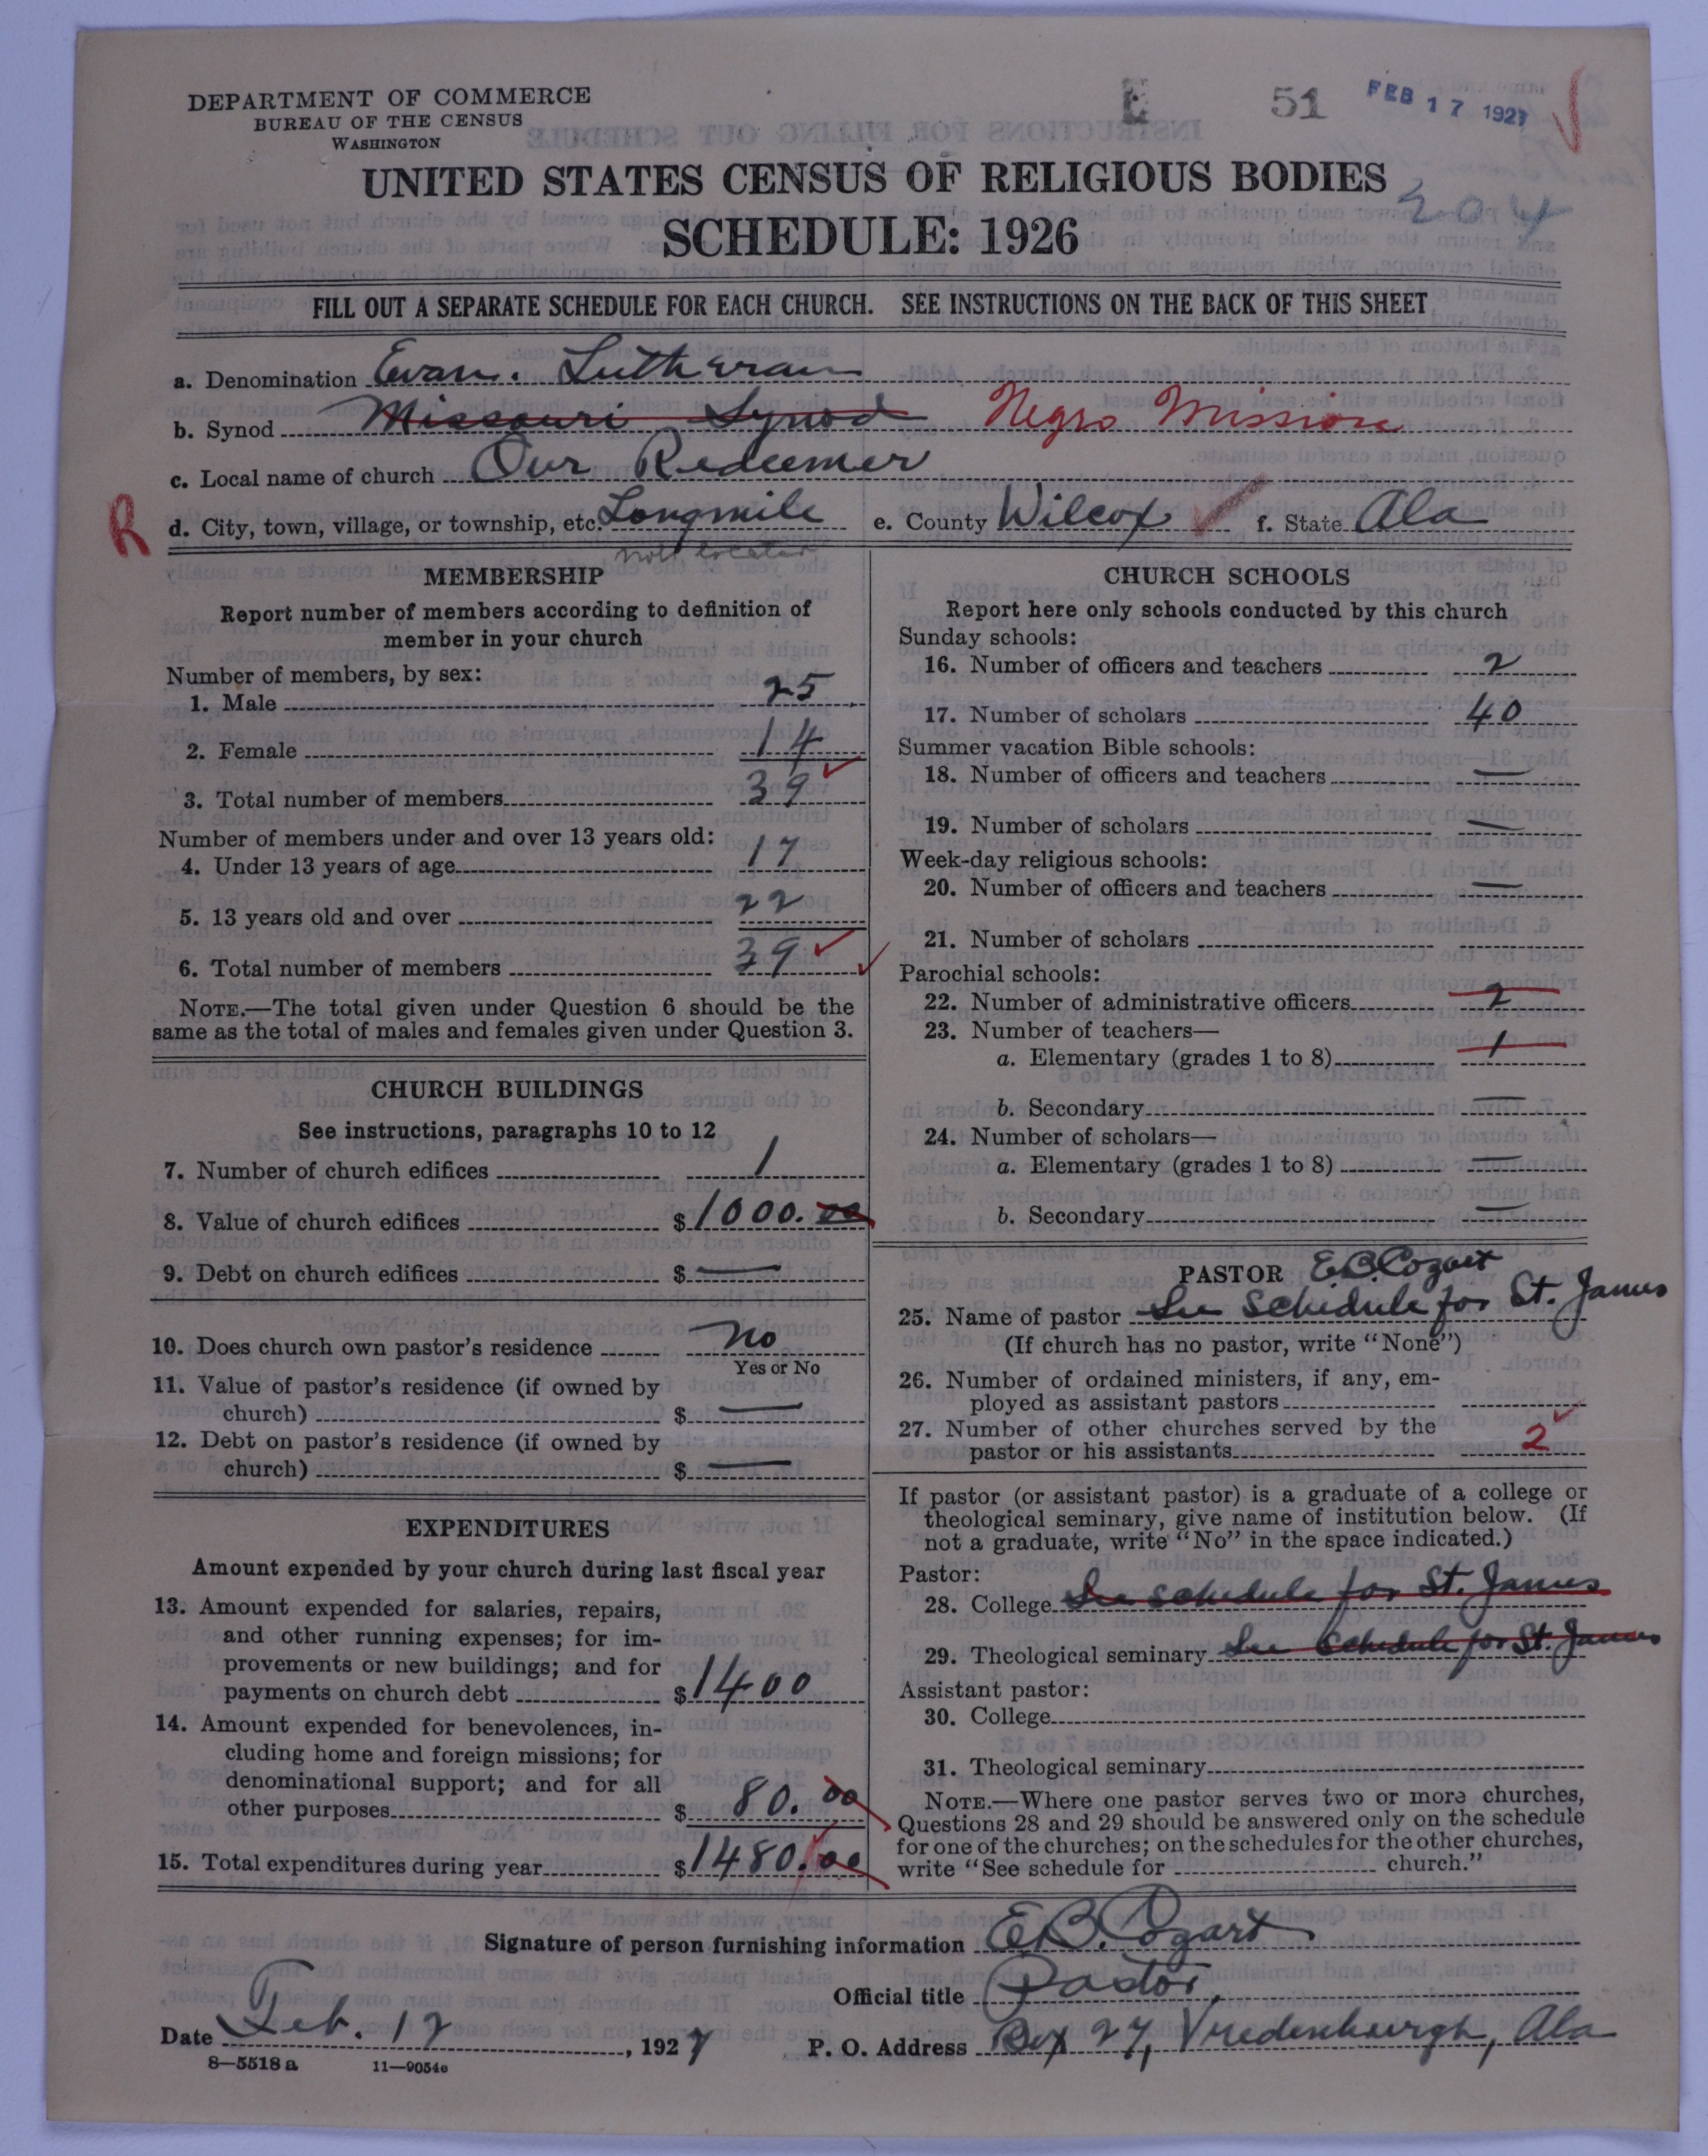 DEPARTMENT OF COMMERCE
BUREAU OF THE CENSUS
WASHINGTON
E 51 FEB 17 1927
UNITED STATES CENSUS OF RELIGIOUS BODIES
204
SCHEDULE: 1926
FILL OUT A SEPARATE SCHEDULE FOR EACH CHURCH. SEE INSTRUCTIONS ON THE BACK OF THIS SHEET
a. Denomination Evan. Lutheran
b. Synod Missouri Synod Negro Mission
c. Local name of church Our Redeemer
R d. City, town, village, or township, etc. Longmile e. County Wilcox f. State Ala
not located
MEMBERSHIP
Report number of members according to definition of
member in your church
Number of members, by sex:
1. Male 25
2. Female 14
3. Total number of members 39
Number of members under and over 13 years old:
4. Under 13 years of age 17
5. 13 years old and over 22
6. Total number of members 39
NOTE.—The total given under Question 6 should be the
same as the total of males and females given under Question 3.
CHURCH BUILDINGS
See instructions, paragraphs 10 to 12
7. Number of church edifices 1
8. Value of church edifices $1000.00
9. Debt on church edifices $ —
10. Does church own pastor's residence No
Yes or No
11. Value of pastor's residence (if owned by
church) $ —
12. Debt on pastor's residence (if owned by
church) $ —
EXPENDITURES
Amount expended by your church during last fiscal year
13. Amount expended for salaries, repairs,
and other running expenses; for im-
provements or new buildings; and for
payments on church debt $1400
14. Amount expended for benevolences, in-
cluding home and foreign missions; for
denominational support; and for all
other purposes $ 80.00
15. Total expenditures during year $1480.00
CHURCH SCHOOLS
Report here only schools conducted by this church
Sunday schools:
16. Number of officers and teachers 2
17. Number of scholars 40
Summer vacation Bible schools:
18. Number of officers and teachers —
19. Number of scholars —
Week-day religious schools:
20. Number of officers and teachers —
21. Number of scholars
Parochial schools:
22. Number of administrative officers 2
23. Number of teachers—
a. Elementary (grades 1 to 8) 1
b. Secondary —
24. Number of scholars—
a. Elementary (grades 1 to 8) —
b. Secondary —
PASTOR E.B. Cozart
25. Name of pastor See schedule for St. James
(If church has no pastor, write "None")
26. Number of ordained ministers, if any, em-
ployed as assistant pastors
27. Number of other churches served by the
pastor or his assistants 2
If pastor (or assistant pastor) is a graduate of a college or
theological seminary, give name of institution below. (If
not a graduate, write "No" in the space indicated.)
Pastor:
28. College See schedule for St. James
29. Theological seminary See Schedule for St. James
Assistant pastor:
30. College
31. Theological seminary
NOTE.—Where one pastor serves two or more churches,
Questions 28 and 29 should be answered only on the schedule
for one of the churches; on the schedules for the other churches,
write "See schedule for church."
Signature of person furnishing information E.B. Cozart
Official title Pastor,
Date Feb. 12, 1927 P. O. Address Box 27, Vredenburgh, Ala
8—5518 a 11—9054c